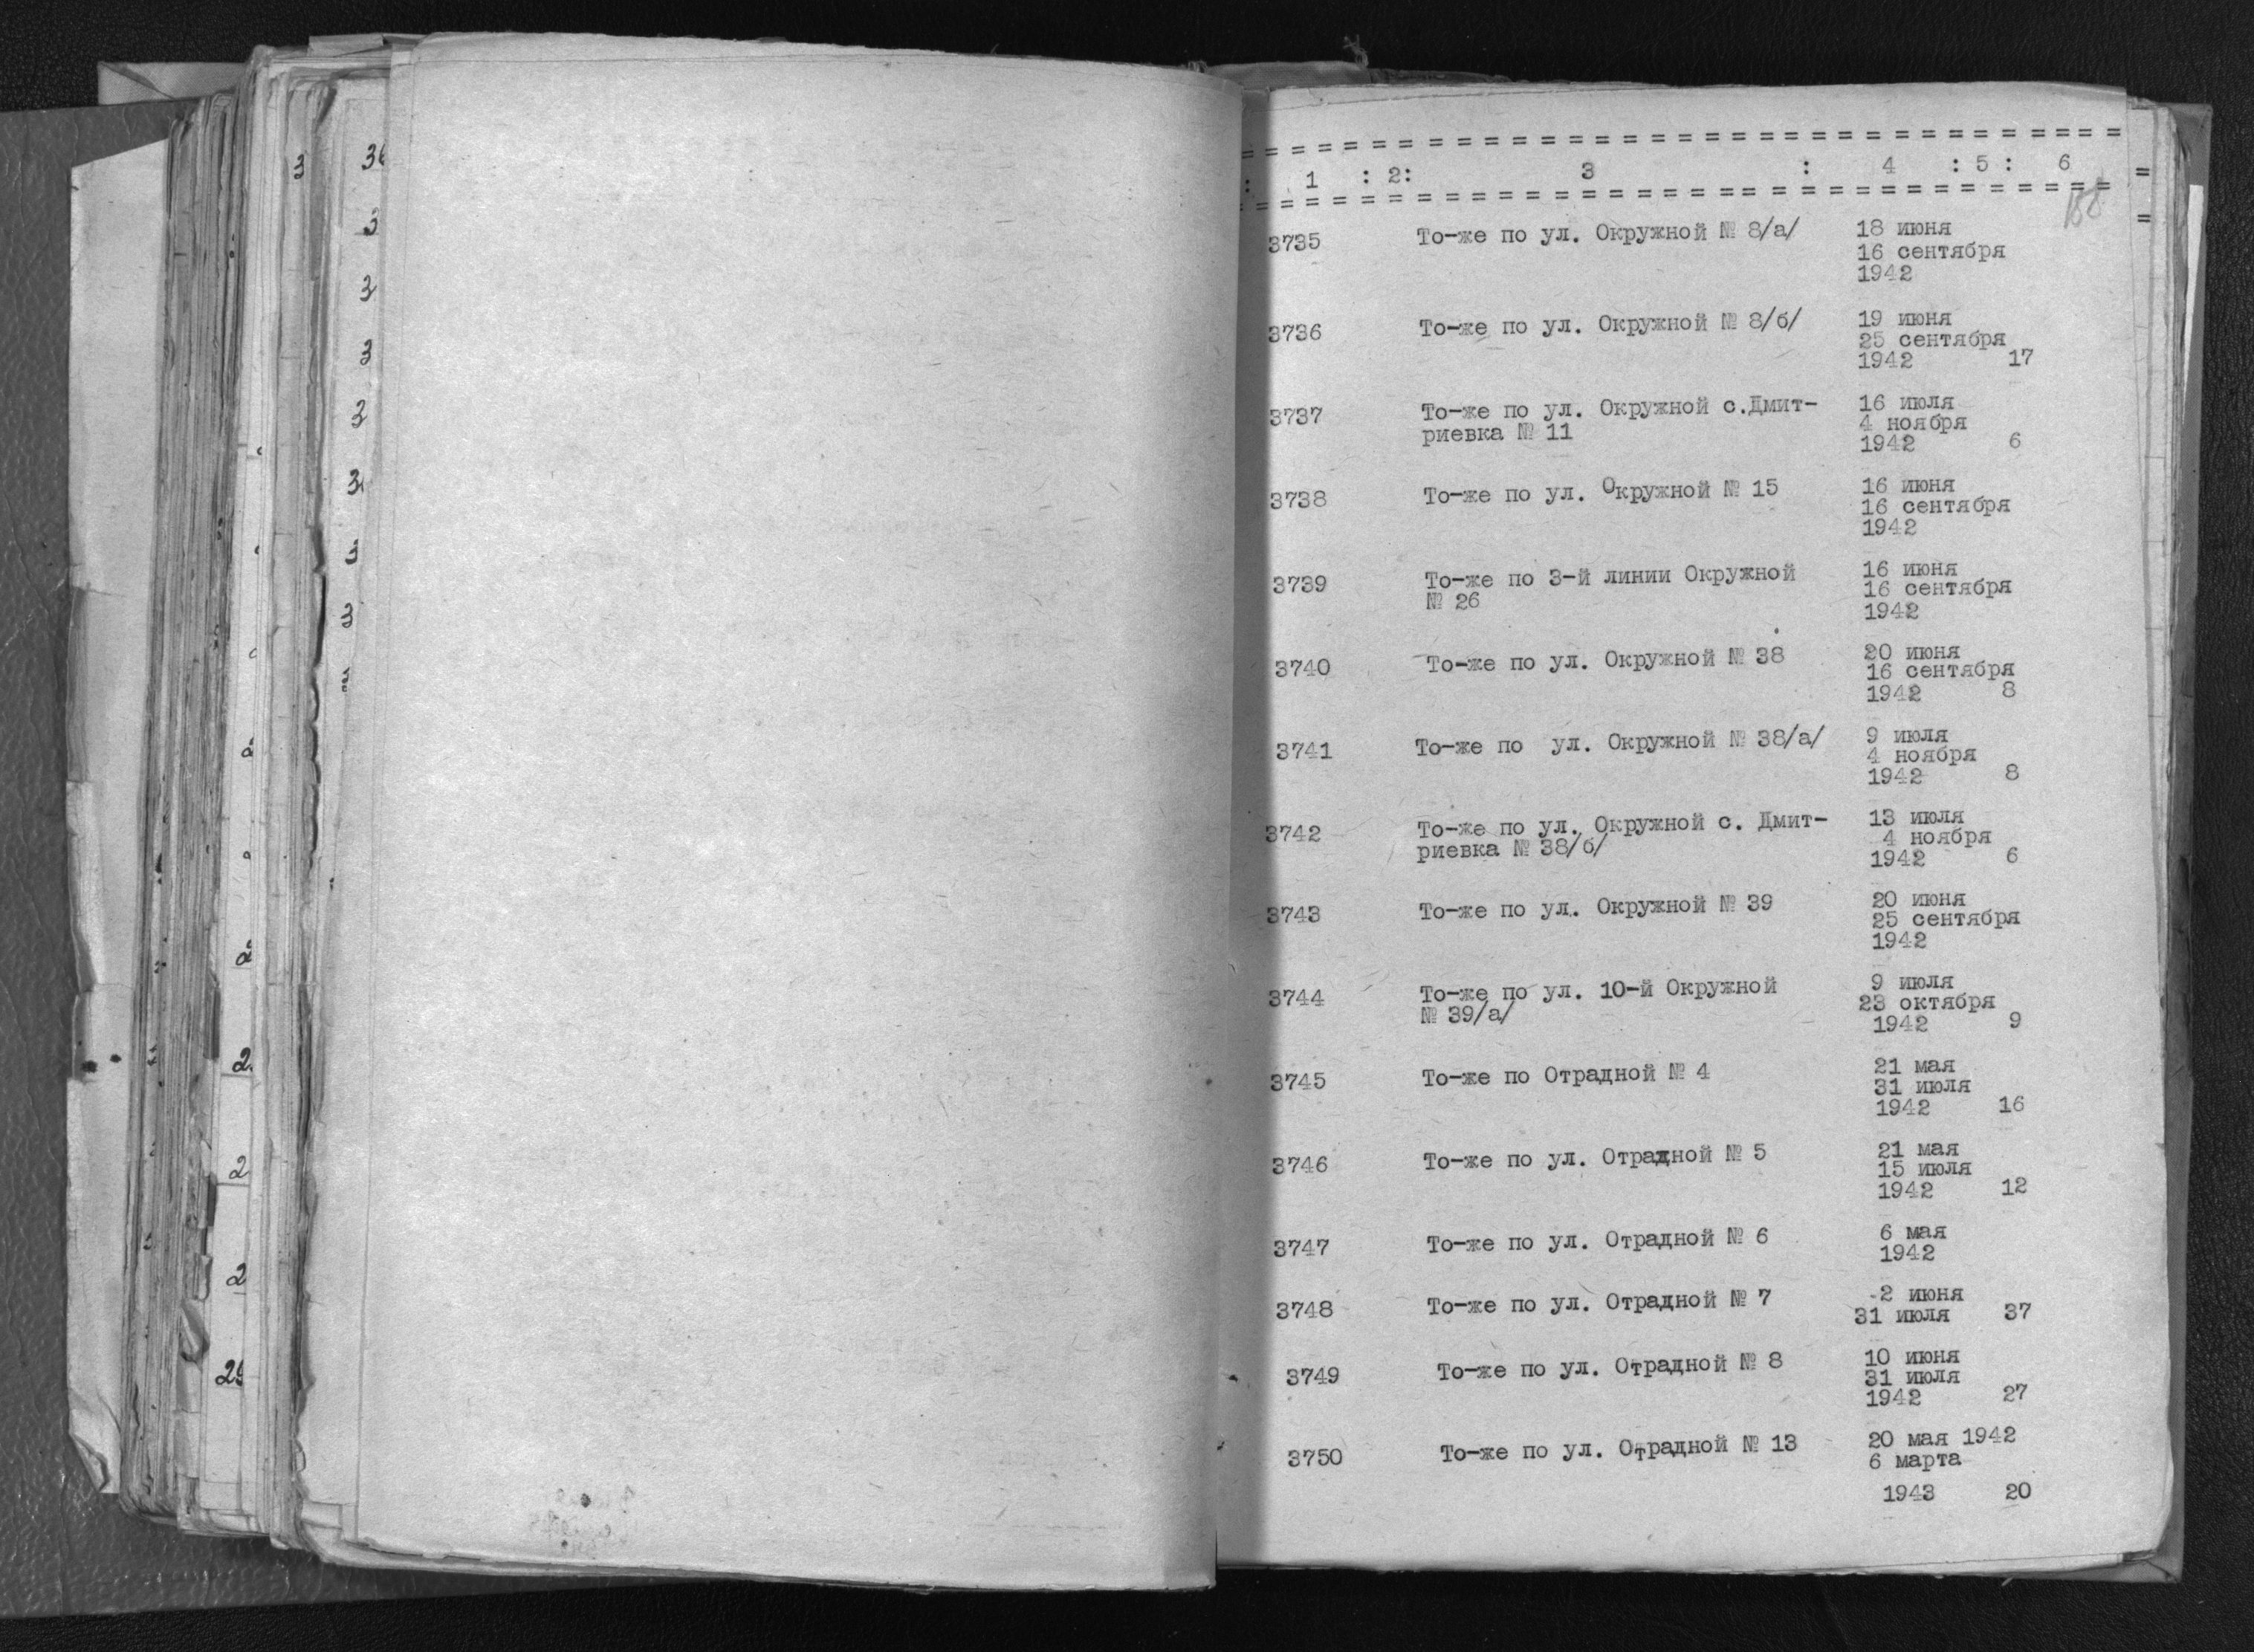 : 1 : 2: 3 : 4 : 5 : 6
188
3735 То-же по ул. Окружной № 8/а/ 18 июня
16 сентября
1942
3736 То-же по ул. Окружной № 8/б/ 19 июня
25 сентября
1942 17
3737 То-же по ул. Окружной с.Дмит- 16 июля
риевка № 11 4 ноября
1942 6
3738 То-же по ул. Окружной № 15 16 июня
16 сентября
1942
3739 То-же по 3-й линии Окружной 16 июня
№ 26 16 сентября
1942
3740 То-же по ул. Окружной № 38 20 июня
16 сентября
1942 8
3741 То-же по ул. Окружной № 38/а/ 9 июля
4 ноября
1942 8
3742 То-же по ул. Окружной с. Дмит- 13 июля
риевка № 38/б/ 4 ноября
1942 6
3743 То-же по ул. Окружной № 39 20 июня
25 сентября
1942
3744 То-же по ул. 10-й Окружной 9 июля
№ 39/а/ 23 октября
1942 9
3745 То-же по Отрадной № 4 21 мая
31 июля
1942 16
3746 То-же по ул. Отрадной № 5 21 мая
15 июля
1942 12
3747 То-же по ул. Отрадной № 6 6 мая
1942
3748 То-же по ул. Отрадной № 7 2 июня
31 июля 37
3749 То-же по ул. Отрадной № 8 10 июня
31 июля
1942 27
3750 То-же по ул. Отрадной № 13 20 мая 1942
6 марта
1943 20